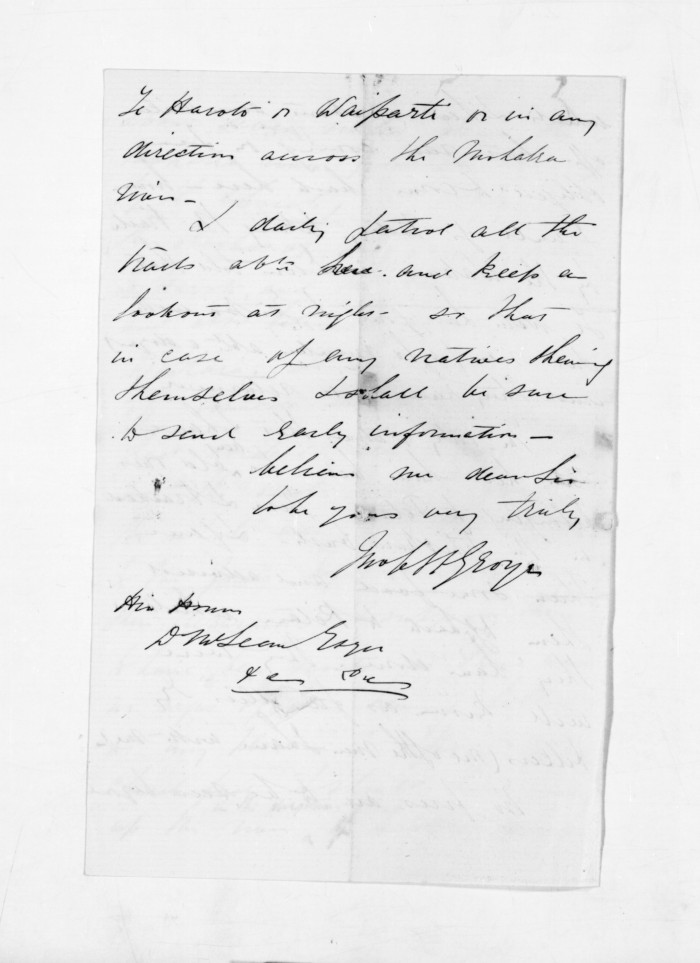 Te Haroto or Waiparti or in any
direction across the Mohaka
River -
I daily patrol all the
tracks abt here and keep a
lookout at night - so that
in case of any natives shewing
themselves I shall be sure
to send early information -
believe me dear Sir
to be yours very truly
His Honour
D McLean Esqre
&c &c